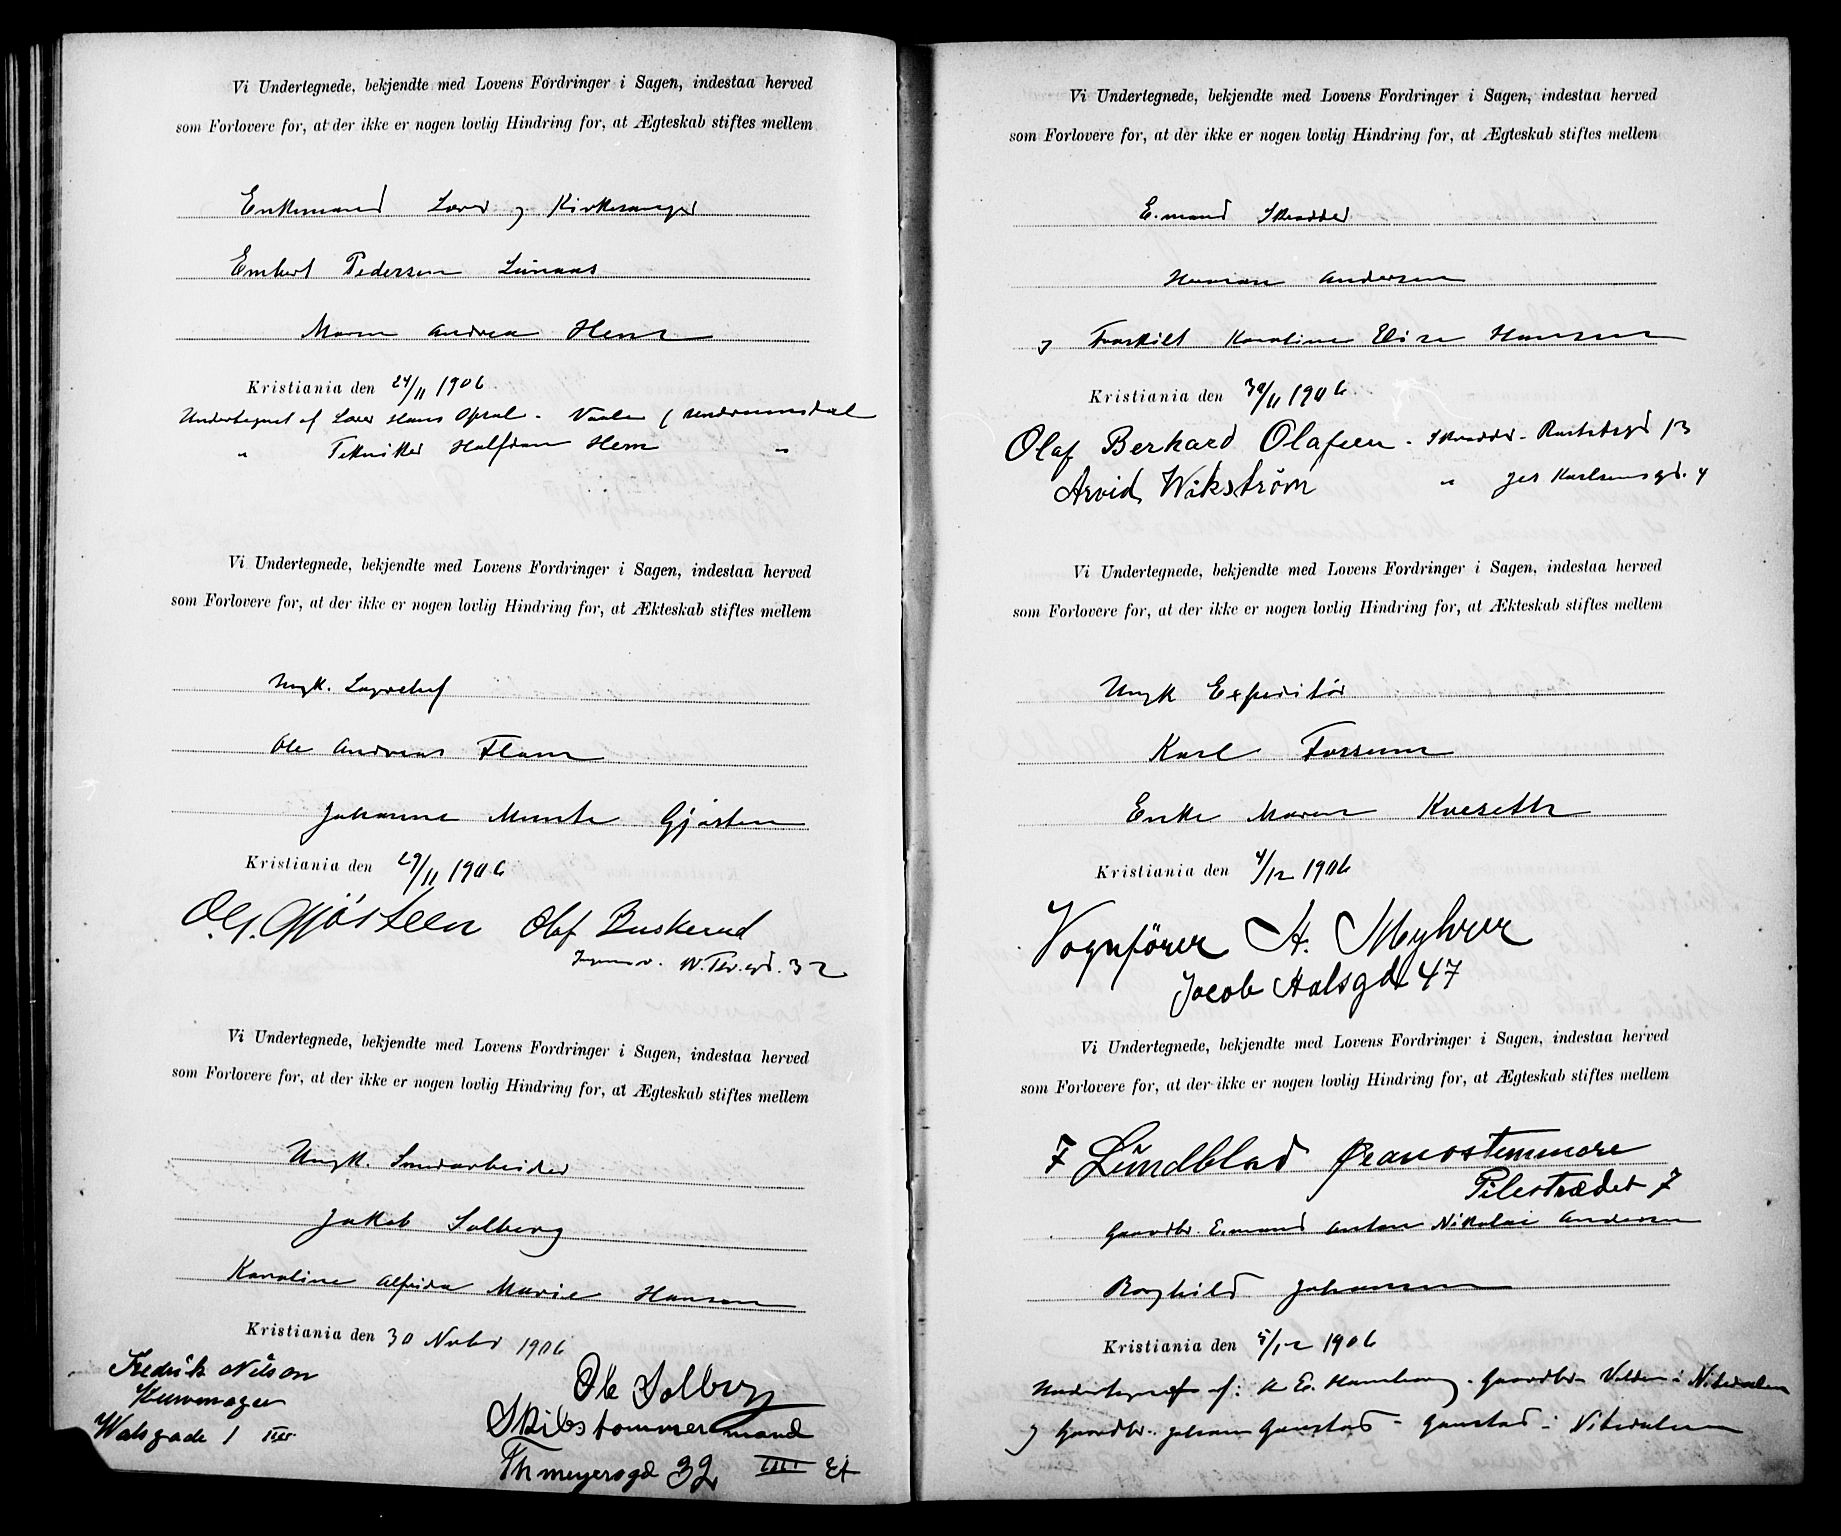 Vi Undertegnede, bekjendte med Lovens Fordringer i Sagen, indestaa herved
som Forlovere for, at der ikke er nogen lovlig Hindring for, at Ægteskab stiftes mellem
Enkemand Lærer og Kirkesanger
Embert Pedersen
Maren Andrea Hem
Kristiania den 24/11 1906
Undertegnet af Lærer Hans Opsal - Vaaler
" Tekniker Halfdan Hem "
Vi Undertegnede, bekjendte med Lovens Fordringer i Sagen, indestaa herved
som Forlovere for, at der ikke er nogen lovlig Hindring for, at Ækteskab stiftes mellem
Ungk.
Ole Andreas Flam
Johanne Munte Gjøsten
Kristiania den 29/11 1906
O. G. Gjösteen Olaf Buskerud
32
Vi Undertegnede, bekjendte med Lovens Fordringer i Sagen, indestaa herved
som Forlovere for, at der ikke er nogen lovlig Hindring for, at Ægteskab stiftes mellem
Ungk.
Jakob Solberg
Karoline Alfrida Marie Hansen
Kristiania den 30 Novbr 1906
Fredrik Nilson
Kurvmager
Walsgade 1 III
Ole Solberg
Skibstømmermand
Th meyersgd 32 III Et
Vi Undertegnede, bekjendte med Lovens Fordringer i Sagen, indestaa herved
som Forlovere for, at der ikke er nogen lovlig Hindring for, at Ægteskab stiftes mellem
E.mand Skrædder
Herman Andersen
og Fraskilt Karoline Elise Hansen
Kristiania den 30/11 1906
Olaf Berhard Olafsen - Skrædder - 13
Arvid Wikström " Karlsensgd. 4
Vi Undertegnede, bekjendte med Lovens Fordringer i Sagen, indestaa herved
som Forlovere for, at der ikke er nogen lovlig Hindring for, at Ækteskab stiftes mellem
Ungk Expeditør
Karl Fossum
Enke Maren Kveseth
Kristiania den 4/12 1906
Vognförer A. Myhrer
Jacob Aalsgd 47
Vi Undertegnede, bekjendte med Lovens Fordringer i Sagen, indestaa herved
som Forlovere for, at der ikke er nogen lovlig Hindring for, at Ægteskab stiftes mellem
F Lündblad Pianostemmere
Pilestrædet 7
Gaardbr. E.mand Anton Nikolai Andersen
Borghild Johansen
Kristiania den 5/12 1906
Undertegnet af: Gaardbr. i Nitedalen
og Gaardbr. Johan Gaustad - Gaustad i Nitedalen